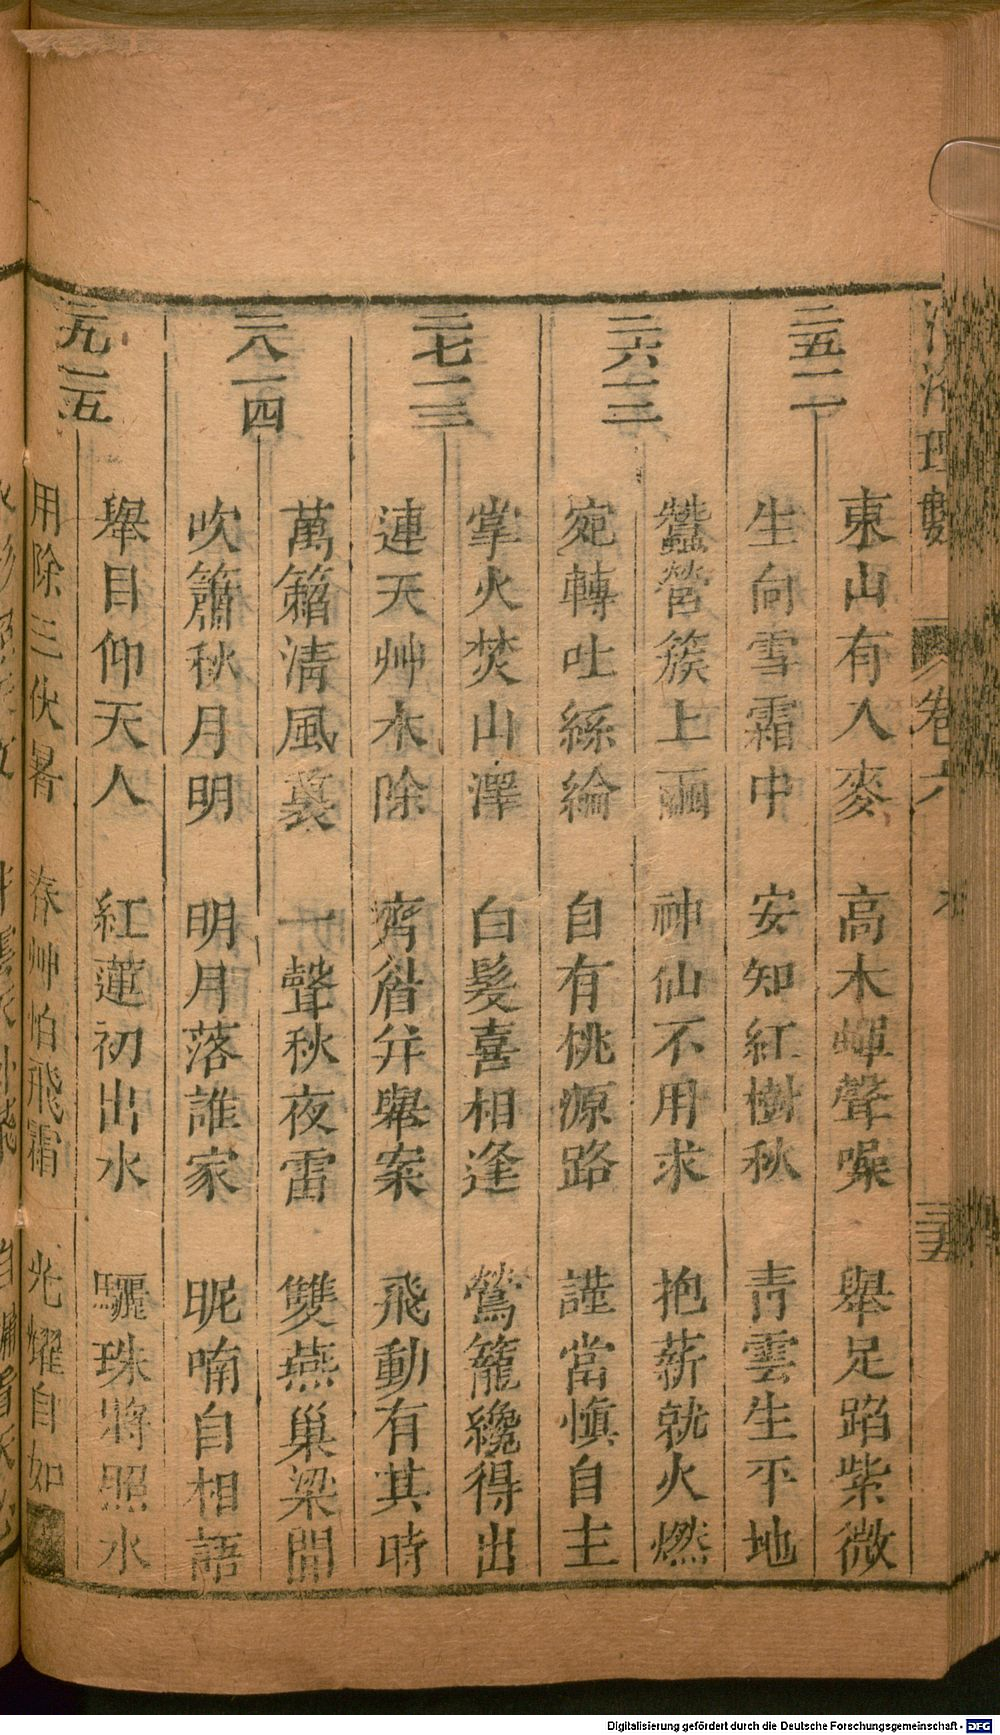 理數 卷六
三五
二五一一
東山有人麥 高木蟬聲噪 舉足踏紫微
生向雪霜中 安知紅樹秋 青雲生平地
二六一二
蠶營簇上繭 神仙不用求 抱薪就火燃
宛轉吐絲綸 自有桃源路 謹當慎自主
二七一三
掌火焚山澤 白髮喜相逢 鶯籠纔得出
連天艸木除 齊眉并舉案 飛動有其時
二八一四
萬籟清風裏 一聲秋夜雷 雙燕巢梁間
吹簫秋月明 明月落誰家 昵喃自相語
二九一五
舉目仰天人 紅蓮初出水 驪珠將照水
用除三伏暑 春艸怕飛霜 光耀自如
Digitalisierung gefördert durch die Deutsche Forschungsgemeinschaft - DFG